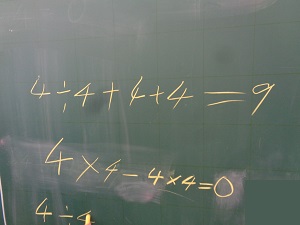 4÷4+4+4=9
4×4-4×4=0
4÷4